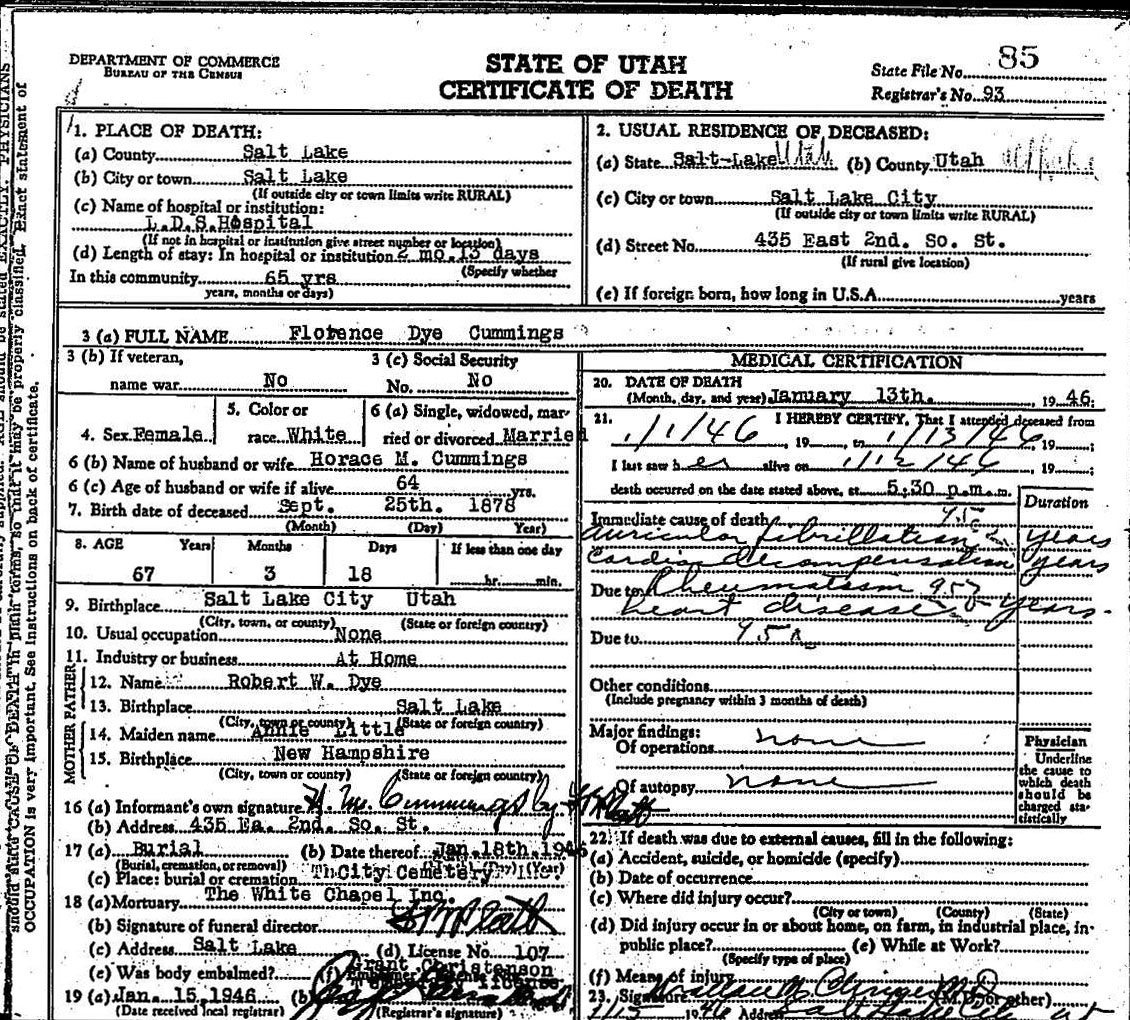 DEPARTMENT OF COMMERCE
BUREAU OF THE CENSUS
STATE OF UTAH
CERTIFICATE OF DEATH
State File No. 85
Registrar's No. 93
1. PLACE OF DEATH:
(a) County Salt Lake
(b) City or town Salt Lake
(If outside city or town limits write RURAL)
(c) Name of hospital or institution:
L.D.S. Hospital
(If not in hospital or institution give street number or location)
(d) Length of stay: In hospital or institution 2 mo. 13 days
(Specify whether
In this community 65 yrs
years, months or days)
2. USUAL RESIDENCE OF DECEASED:
(a) State Salt Lake Utah (b) County Utah
(c) City or town Salt Lake City
(If outside city or town limits write RURAL)
(d) Street No. 435 East 2nd. So. St.
(If rural give location)
(e) If foreign born, how long in U.S.A. years
3 (a) FULL NAME Florence Dye Cummings
3 (b) If veteran,
name war No
3 (c) Social Security
No. No
4. Sex Female
5. Color or
race White
6 (a) Single, widowed, mar-
ried or divorced Married
6 (b) Name of husband or wife Horace M. Cummings
6 (c) Age of husband or wife if alive 64 yrs.
7. Birth date of deceased Sept. 25th. 1878
(Month) (Day) Year)
8. AGE Years Months Days If less than one day
67 3 18 hr. min.
9. Birthplace Salt Lake City Utah
(City, town, or county) (State or foreign country)
10. Usual occupation None
11. Industry or business At Home
FATHER
12. Name Robert W. Dye
13. Birthplace Salt Lake
(City, town or county) (State or foreign country)
MOTHER
14. Maiden name Annie Little
15. Birthplace New Hampshire
(City, town or county) (State or foreign country)
16 (a) Informant's own signature H. M. Cummings by
(b) Address 435 Ea. 2nd. So. St.
17 (a) Burial (b) Date thereof Jan. 18th. 1946
(Burial, cremation, or removal)
(c) Place: burial or cremation City Cemetery
18 (a) Mortuary The White Chapel Inc.
(b) Signature of funeral director
(c) Address Salt Lake (d) License No. 107
(e) Was body embalmed? (f) Grant Christenson
19 (a) Jan. 15, 1946 (b)
(Date received local registrar) (Registrar's signature)
MEDICAL CERTIFICATION
20. DATE OF DEATH
(Month, day, and year) January 13th. 1946.
21. I HEREBY CERTIFY, That I attended deceased from
1/1/46, 19 , to 1/13/46, 19 ;
I last saw her alive on 1/12/46, 19 ;
death occurred on the date stated above, at 5:30 p.m. m.
Duration
Immediate cause of death
auricular fibrillation years
cardiac decompensation years
Due to Rheumatism
heart disease years.
Due to 95
Other conditions
(Include pregnancy within 3 months of death)
Major findings:
Of operations none
Of autopsy none
Physician
Underline
the cause to
which death
should be
charged sta-
tistically
22. If death was due to external causes, fill in the following:
(a) Accident, suicide, or homicide (specify)
(b) Date of occurrence
(c) Where did injury occur?
(City or town) (County) (State)
(d) Did injury occur in or about home, on farm, in industrial place, in-
public place? (e) While at Work?
(Specify type of place)
(f) Means of injury
23. Signature (M.D. or other)
1946 Address Salt Lake City
OCCUPATION is very important. See instructions on back of certificate.